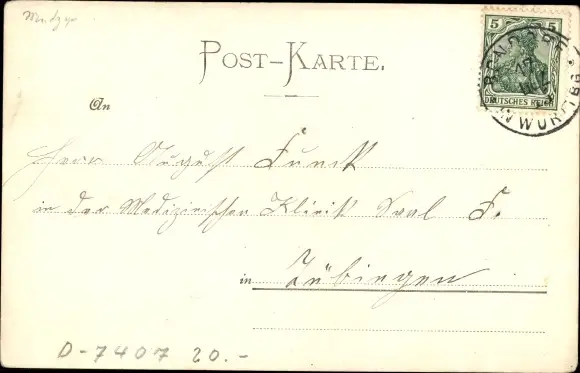 POST-KARTE.
5 5
DEUTSCHES REICH
BONDORF
WÜRTTBG
An
Herrn August Funck
in der Medizinischen Klinik Saal F.
in Tübingen
D-7407 20.-